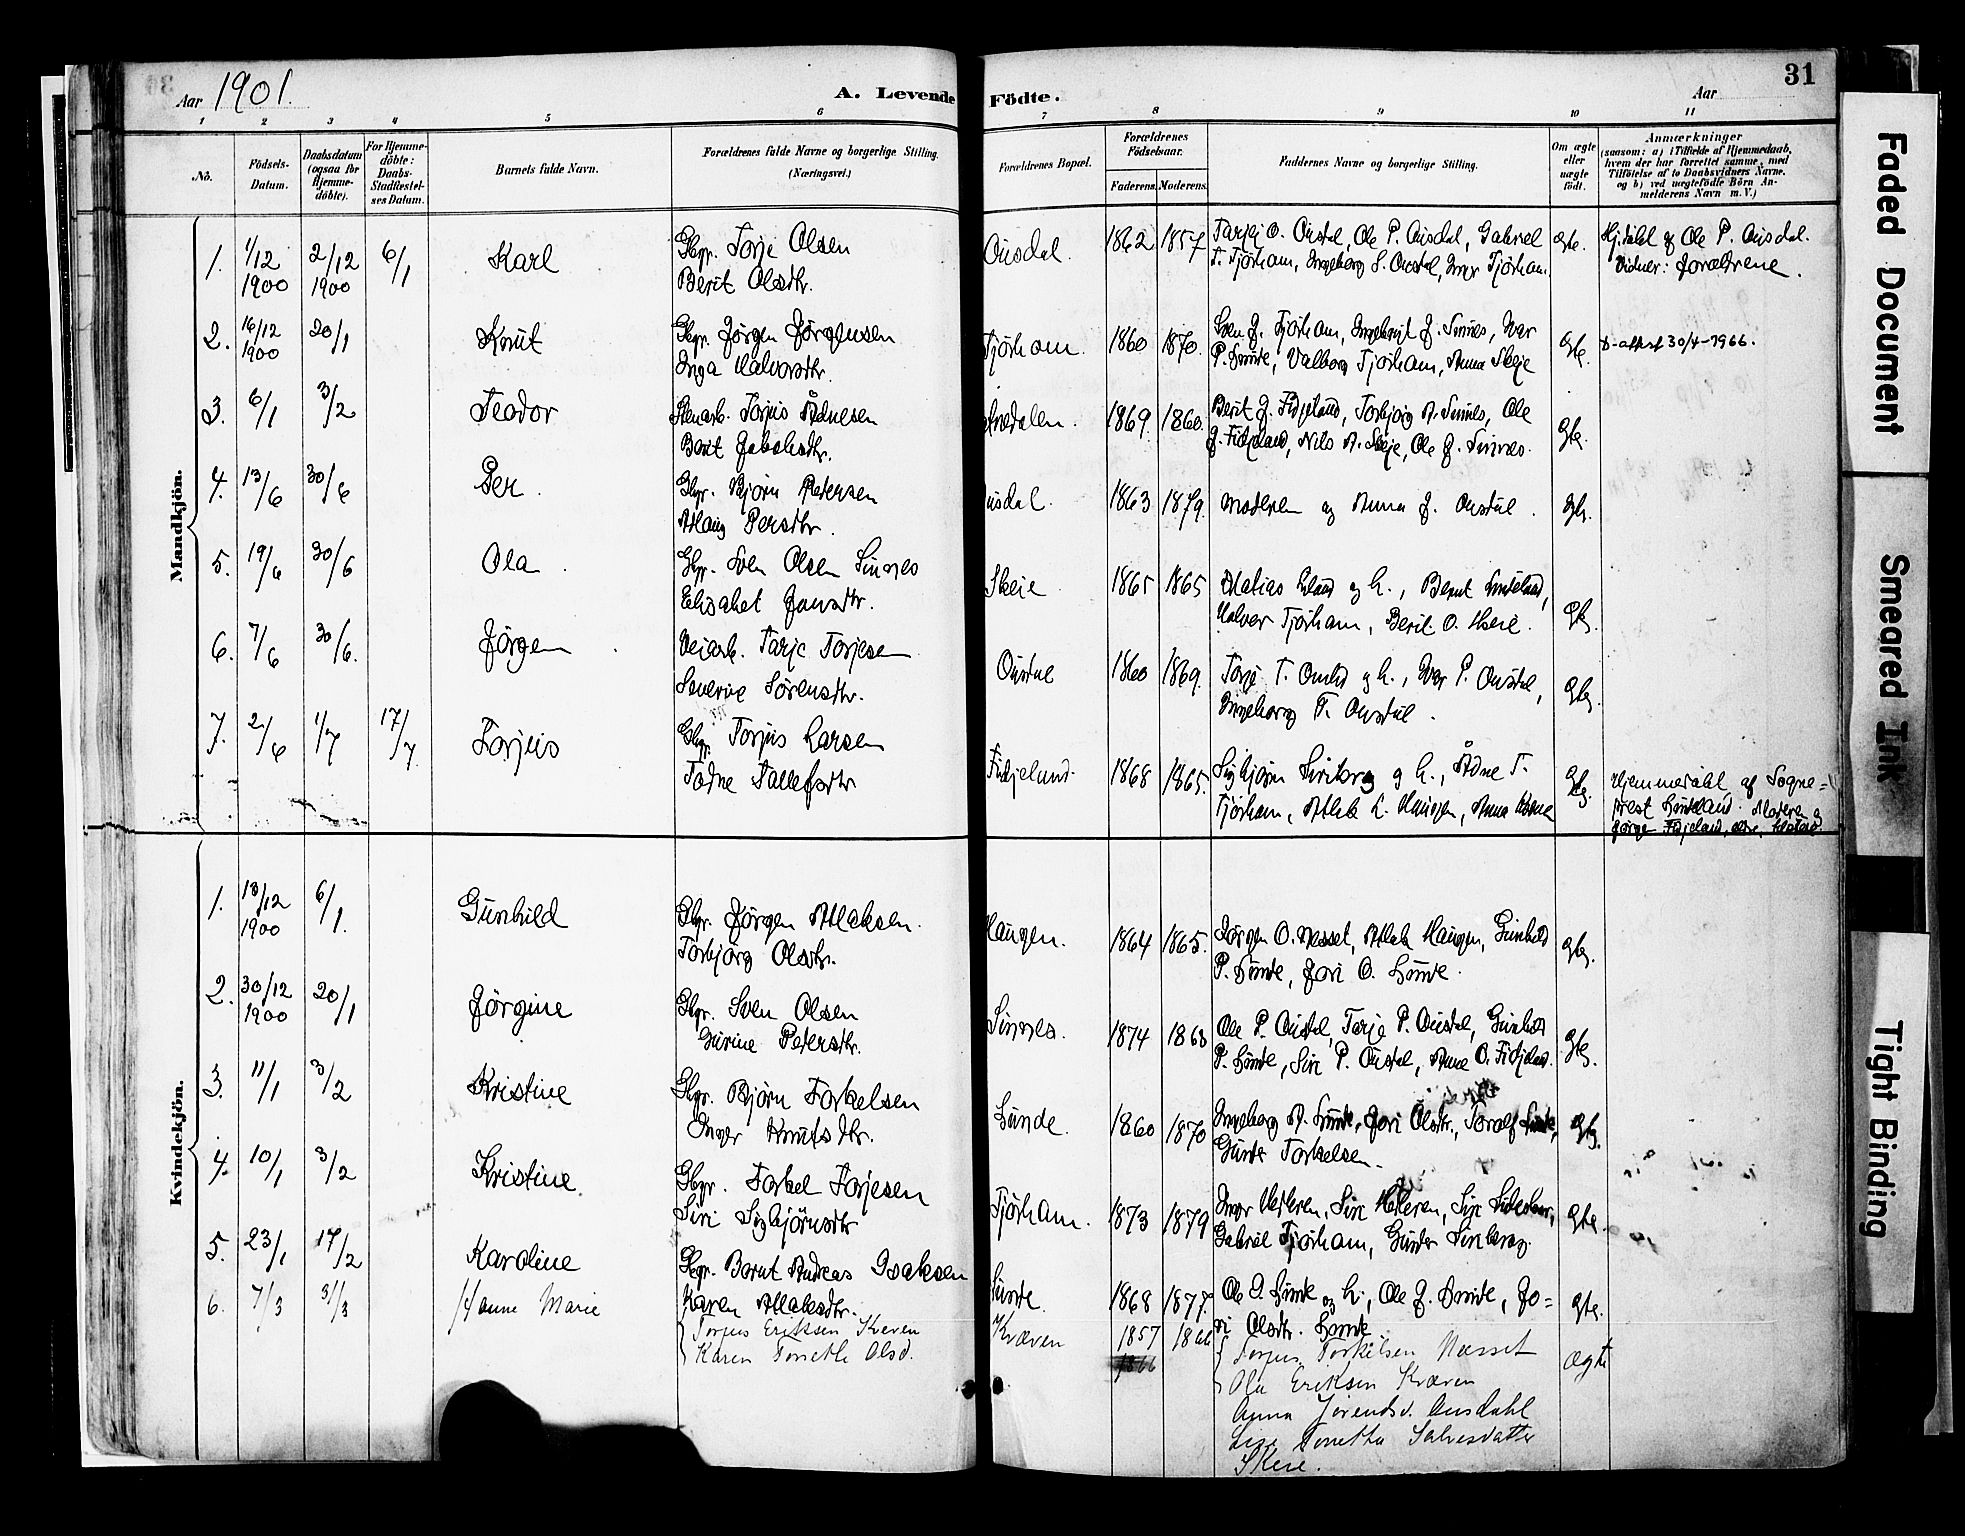 Aar 1901.
A. Levende Födte.
Aar
31
1 2 3 4 5 6 7 8 9 10 11
No.
Födsels-
Datum.
Daabsdatum
(ogsaa for
Hjemme-
döbte).
For Hjemme-
döbte:
Daabs-
Stadfæstel-
ses Datum.
Barnets fulde Navn.
Forældrenes fulde Navne og borgerlige Stilling.
(Næringsvei.)
Forældrenes Bopæl.
Forældrenes
Födselsaar.
Faderens. Moderens.
Faddernes Navne og borgerlige Stilling.
Om ægte
eller
uægte
födt.
Anmærkninger
(saasom: a) i Tilfælde af Hjemmedaab,
hvem der har forrettet samme, med
Tilföielse af to Daabsvidners Navne,
og b) ved uægtefödte Börn An-
melderens Navn m. V.)
Mandkjön.
1. 1/12 1900 2/12 1900 6/1 Karl
Gbgr. Torje Olsen
Berit Olsdtr.
Ousdal. 1862 1857
Tarjei O. Ousdal, Ole P. Ousdal, Gabriel
T. Tjörham, Ingeborg S. Ousdal, Inger Tjörham.
gte.
Hj.døbt af Ole P. Ousdal.
Vidner: forældrene.
2. 16/12 1900 20/1 Knut
Gbgr. Jörgen Jörgensen
Inga Halvorsdtr.
Tjörham. 1860 1870.
Sven J. Tjörham, Ingebrigt J. Sinnes, Ivar
P. Lunde, Valborg Tjörham, Anna Skeje
gte.
D-attest 30/4-1966.
3. 6/1 3/2 Teodor
Stenarb. Torjus Ådnesen
Berit Jakobsdtr.
1869. 1860.
Berit J. Fidjeland, Torbjörg A. Sinnes, Ole
J. Fidjeland, Nils A. Skeje, Ole J. Sinnes.
gte.
4. 13/6 30/6 Per.
Gbgr. Björn Petersen
Persdtr.
usdal. 1863 1879.
Moderen og Anna J. Ousdal.
gte.
5. 19/6 30/6 Ola
Gbgr. Sven Olsen Sinnes
Elisabet Jonsdtr.
Skeie 1865 1865
Matias og h., Bernt
Halvor Tjörham, Berit O. Skeie.
gte.
6. 7/6 30/6. Jörgen
Veiarb. Tarje Torjesen
Severine Sörensdtr.
Ousdal 1860 1869.
Torje T. og h., Ivar P. Ousdal,
Ingeborg T. Ousdal.
gte.
7. 2/6 1/7 17/7. Torjus
Gbgr. Torjus Larsen
Todne Tallefsdtr
Fidjeland. 1868 1865.
Sigbjörn og h., Ådne T.
Tjörham, Atlak L. Haugen, Anna
gte.
Hjemmedøbt af Sogne=
prest Moderen og
Jörgen Fidjeland,
Kvindekjön.
1. 13/12 1900 6/1. Gunhild
Gbgr. Jörgen Atlaksen.
Torbjörg Olsdtr.
Haugen. 1864 1865.
Jörgen O. Nesset, Atlak Haugen, Gunhild
P. Lunde, Jori O. Lunde.
gte.
2. 30/12 1900 20/1 Jörgine
Gbgr. Sven Olsen
Gurine Petersdtr.
Sinnes. 1874 1868
Ole P. Ousdal, Tarje P. Ousdal, Gunhild
P. Lunde, Siri P. Ousdal, Anne O. Fidjeland.
gte.
3. 11/1 3/2 Kristine
Gbgr. Björn Torkelsen
Inger Knutsdtr.
Lunde. 1860 1870
Ingeborg A. Lunde, Jori Olsdtr., Toralf Lunde,
Gunder Torkelsen.
gte.
4. 10/1 3/2 Kristine
Gbgr. Torkel Torjesen
Siri Sigbjörnsdtr
Tjörham. 1873 1879
Inger Siri Siri
Gabriel Tjörham, Gunder
gte.
5. 23/1 17/2 Karoline
Gbgr. Bernt Andreas Isaksen
Karen Atlaksdtr.
Lunde. 1868 1877.
Ole O. Lunde og h., Ole J. Lunde, Jo=
ri Olsdtr. Lunde
gte.
6. 7/3 31/3 Hanne Marie
Torjus Eriksen Kveven
Karen Tonette Olsd.
Kvæven 1857 1866
1866
Torjus Torkelsen Næsset
Ola Eriksen Kvæven
Anna Jörendsd. Ousdahl
Lise Tonetta Salvesdatter
Skeie.
Ægte
Faded Document
Smeared Ink
Tight Binding